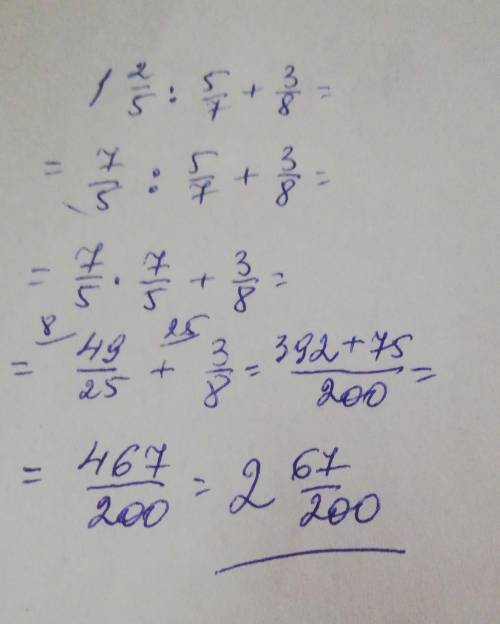 1 2/5 : 5/7 + 3/8 =
= 7/5 : 5/7 + 3/8 =
= 7/5 · 7/5 + 3/8 =
= 8 49/25 + 25 3/8 = 392+75/200 =
= 467/200 = 2 67/200